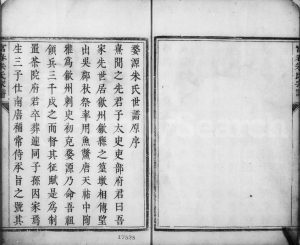 婺源朱氏世譜原序
熹聞之先君子太史吏部府君曰吾
家先世居歙州歙縣之篁墩相傳望
出吳郡秋祭率用魚鱉唐天祐中陶
雅為歙州刺史初克婺源乃命吾祖
領兵三千戍之而督其征賦是為制
置茶院府君卒葬連同子孫因家焉
生三子仕南唐補常侍承旨之號其
17525